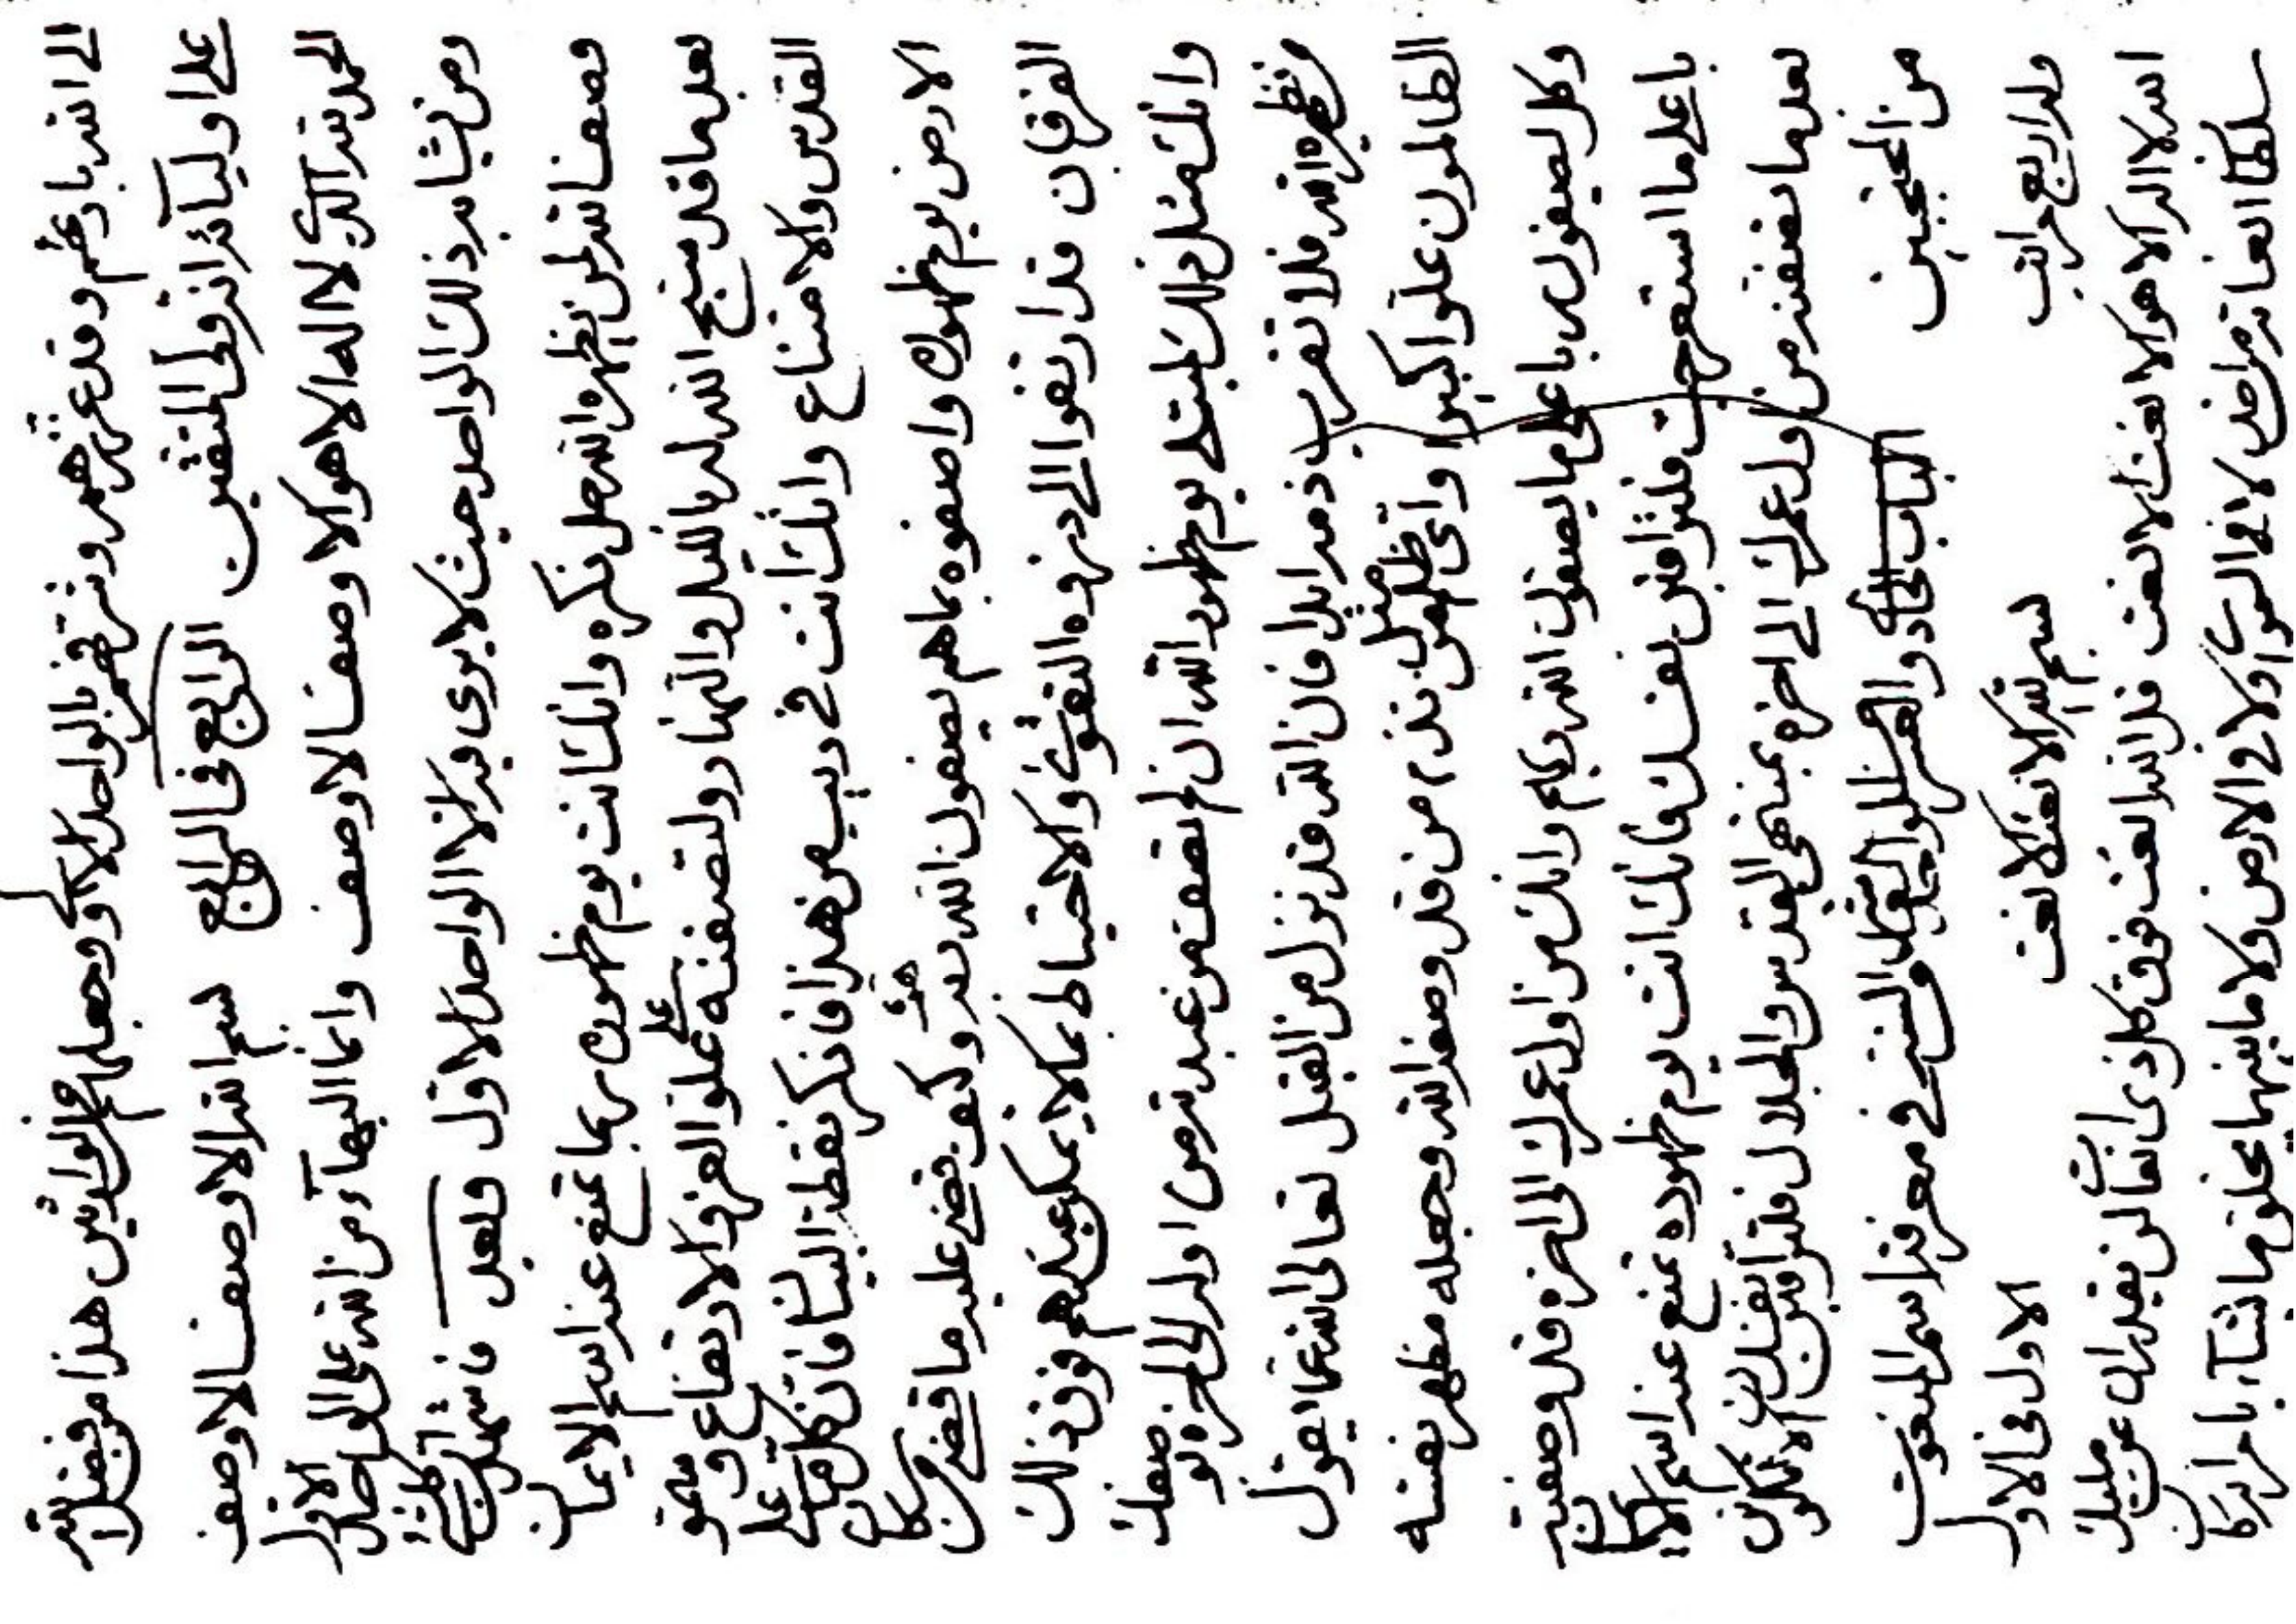 الى الله بارئهم وقد عرشهم وشرقهم بالواحد الاول وجعلهم الوارثين هذا من فضل الله
على اوليائه انه ولى المتقين الرابع فى الرابع بسم الله الاوصف الاوصف
الحمد لله الذى لا اله الا هو الاوصف الاوصف وانما البهاء من الله على الواحد الاول
ومن يشابه ذلك الواحد حيث لا يرى فيه الا الواحد الاول وبعد فاشهد
وصف الله لمن يظهره الله جل ذكره وانك انت يوم ظهوره بما تمتنع عند اسم الايمان
بعد ما قد الله له بالليل والنهار ولتصفنه على علو العز والارتفاع وسمو
القدس والامتناع وانك انت فى ريب من هذا فاذكر نقطة البيان فان كل ما على
الارض يوم ظهوره واصفوه بما هم يصفون الله به وكيف قضى عليه ما قضى من كان
الفرقان قد ارتقوا الى ذروه التقوى والاحتياط بما لا يمكن عندهم فوق ذلك
وانك مثل ذلك لتبتلى يوم ظهور الله ان لم تصف من عبدته من اوله الى اخره لو صفت
مظهر الله فلا تقرب ذمه ابدا فان الله قد نزل من القبل تعالى الله عما يقول
الظالمون علوا كبيرا واى ظلم مثل من تذم من قد وصفه الله وجعله مظهر نفسه
وكل ليصفون باعلى ما يصفون الله ربهم وانك من اول عمرك الى اخره قد وصفته
باعلى ما استعرجت فلتراقبن نفسك فانك انت يوم ظهوره تمنع عند اسم الايمان
بعد ما تصفنه من اول عمرك الى اخره بمنتهى القدس والجلال فلتراقبن نفسك ان لا تكونن
من المحتجبين الباب الحاد والعشر فى معرفة اسم المنعوت
وله اربع مراتب بسم الله الانعت الانعت الاول فى الاول
الله لا اله الا هو الانعت الانعت قل الله انعت فوق كل ذى انعات لن يقدر ان عن مليك
سلطان انعاته من احد لا فى السموات ولا فى الارض ولا ما بينهما يخلق ما يشاء بامره انه كان